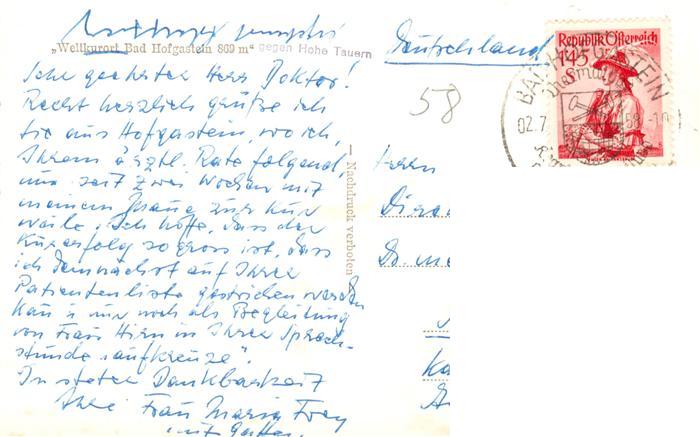 „Weltkurort Bad Hofgastein 869 m“ gegen Hohe Tauern
Sehr geehrter Herr Doktor!
Recht herzlich grüße ich
Sie aus Hofgastein, wo ich,
Ihrem ärztl. Rate folgend
nun seit zwei Wochen mit
meinem zur Kur
weile. Ich hoffe, dass der
Kurerfolg so gross ist, dass
ich demnächst auf Ihrer
Patientenliste gestrichen werden
kann u. nur noch als Begleitung
von Frau Hirn in Ihrer Sprech-
stunde „aufkreuze“.
In steter Dankbarkeit
Ihre Frau Maria Frey
mit Gatten.
— Nachdruck verboten
Deutschland
58
Republik Österreich
1.45
S
BAD HOFGASTEIN
02.7.
58-10
Herrn
Dr. me